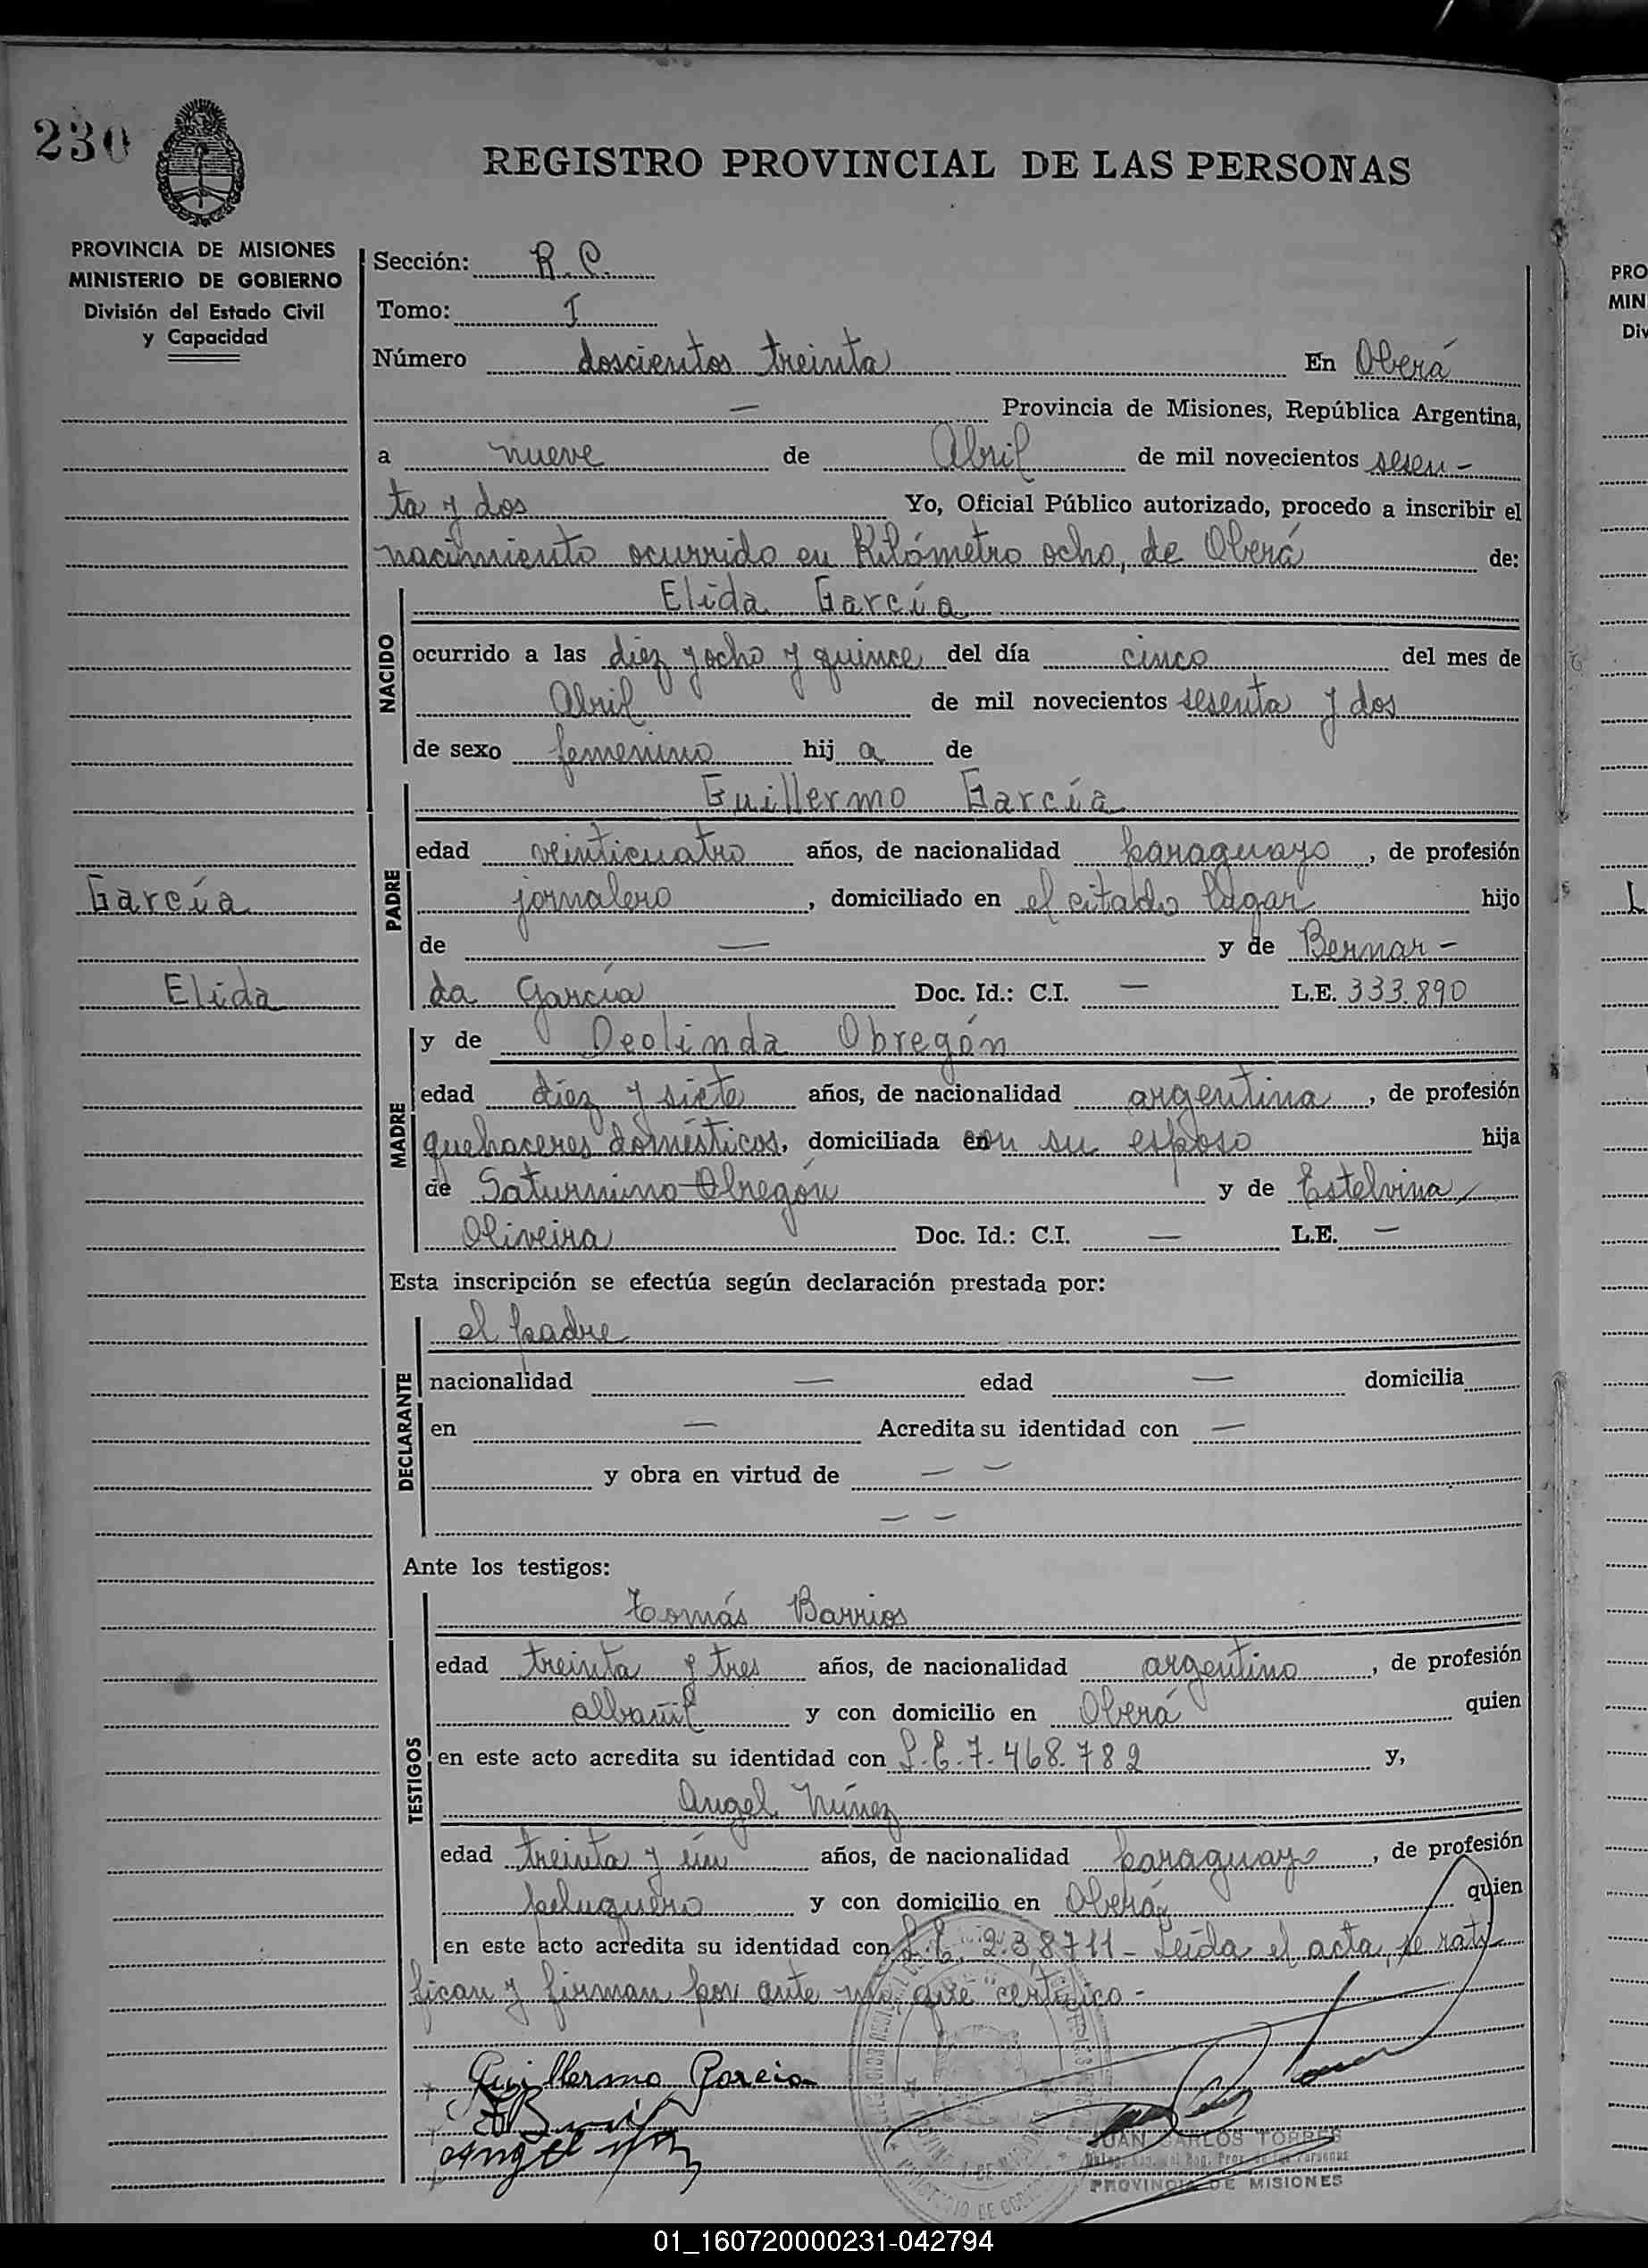 230
REGISTRO PROVINCIAL DE LAS PERSONAS
PROVINCIA DE MISIONES
MINISTERIO DE GOBIERNO
División del Estado Civil
y Capacidad
Sección: R. C.
Tomo: I
Número doscientos treinta En Oberá
— Provincia de Misiones, República Argentina,
a nueve de Abril de mil novecientos sesen-
ta y dos Yo, Oficial Público autorizado, procedo a inscribir el
nacimiento ocurrido en Kilómetro ocho, de Oberá de:
NACIDO
Elida García
ocurrido a las diez y ocho y quince del día cinco del mes de
Abril de mil novecientos sesenta y dos
de sexo femenino hij a de
PADRE
Guillermo García
edad veinticuatro años, de nacionalidad paraguayo, de profesión
jornalero, domiciliado en el citado lugar hijo
de — y de Bernar-
da García Doc. Id.: C.I. — L.E. 333.890
García
Elida
MADRE
y de Deolinda Obregón
edad diez y siete años, de nacionalidad argentina, de profesión
quehaceres domésticos, domiciliada con su esposo hija
de Saturnino Obregón y de Estelvina
Oliveira Doc. Id.: C.I. — L.E. —
Esta inscripción se efectúa según declaración prestada por:
DECLARANTE
el padre
nacionalidad — edad — domicilia
en — Acredita su identidad con —
y obra en virtud de — —
— —
Ante los testigos:
TESTIGOS
Tomás Barrios
edad treinta y tres años, de nacionalidad argentino, de profesión
albañil y con domicilio en Oberá quien
en este acto acredita su identidad con L.E. 7.468.782 y,
Angel Núñez
edad treinta y un años, de nacionalidad paraguayo, de profesión
peluquero y con domicilio en Oberá quien
en este acto acredita su identidad con L.E. 238711- Leída el acta, se rati
fican y firman por ante mí que certifico-
Guillermo Garcia
Angel
JUAN CARLOS TORRES
PROVINCIA DE MISIONES
PRO
MIN
Div
01_160720000231-042794